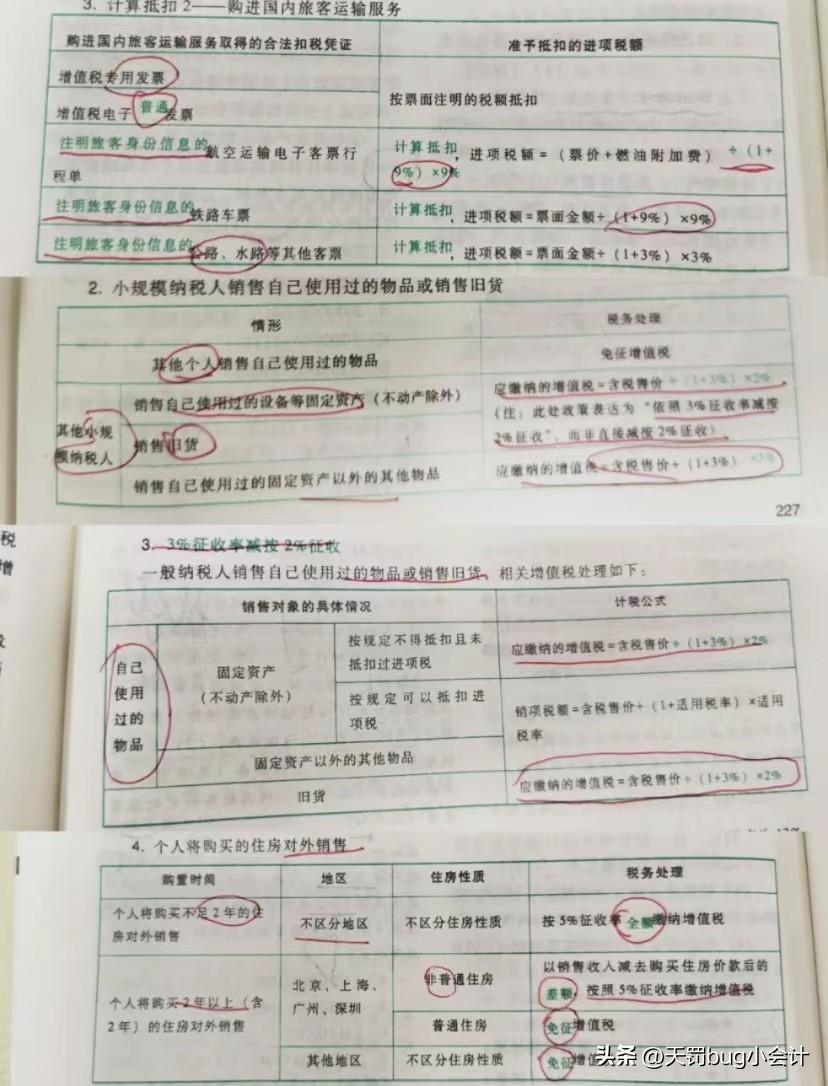 3. 计算抵扣2——购进国内旅客运输服务
购进国内旅客运输服务取得的合法扣税凭证
准予抵扣的进项税额
增值税专用发票
增值税电子普通发票
按票面注明的税额抵扣
注明旅客身份信息的航空运输电子客票行
程单
计算抵扣，进项税额=（票价+燃油附加费）÷（1+
9%）×9%
注明旅客身份信息的铁路车票
计算抵扣，进项税额=票面金额÷（1+9%）×9%
注明旅客身份信息的公路、水路等其他客票
计算抵扣，进项税额=票面金额÷（1+3%）×3%
2. 小规模纳税人销售自己使用过的物品或销售旧货
情形
税务处理
其他个人销售自己使用过的物品
免征增值税
其他小规
模纳税人
销售自己使用过的设备等固定资产（不动产除外）
销售旧货
应缴纳的增值税=含税售价÷（1+3%）×2%
（注：此处政策表达为“依照3%征收率减按
2%征收”，而非直接减按2%征收）
销售自己使用过的固定资产以外的其他物品
应缴纳的增值税=含税售价÷（1+3%）×3%
227
税
增
3. 3%征收率减按2%征收
一般纳税人销售自己使用过的物品或销售旧货，相关增值税处理如下：
销售对象的具体情况
计税公式
自己
使用
过的
物品
固定资产
（不动产除外）
按规定不得抵扣且未
抵扣过进项税
应缴纳的增值税=含税售价÷（1+3%）×2%
按规定可以抵扣进
项税
销项税额=含税售价÷（1+适用税率）×适用
税率
固定资产以外的其他物品
旧货
应缴纳的增值税=含税售价÷（1+3%）×2%
4. 个人将购买的住房对外销售
购置时间
地区
住房性质
税务处理
个人将购买不足2年的住
房对外销售
不区分地区
不区分住房性质
按5%征收率全额缴纳增值税
个人将购买2年以上（含
2年）的住房对外销售
北京、上海、
广州、深圳
非普通住房
以销售收入减去购买住房价款后的
差额，按照5%征收率缴纳增值税
普通住房
免征增值税
其他地区
不区分住房性质
免征增值税
头条@天罚bug小会计